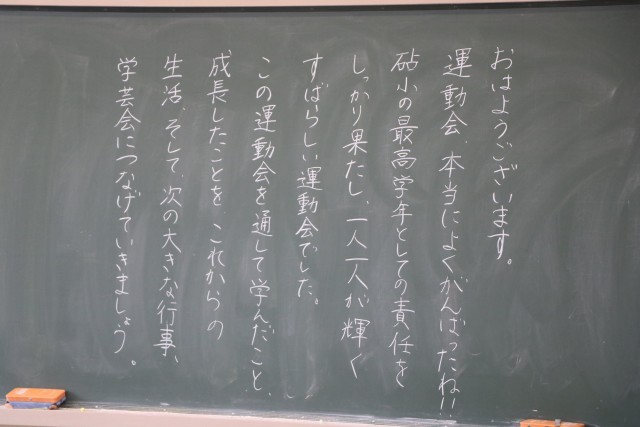 おはようございます。
運動会、本当によくがんばったね!!
砧小の最高学年としての責任を
しっかり果たし、一人一人が輝く
すばらしい運動会でした。
この運動会を通して学んだこと、
成長したことを、これからの
生活、そして、次の大きな行事、
学芸会につなげていきましょう。